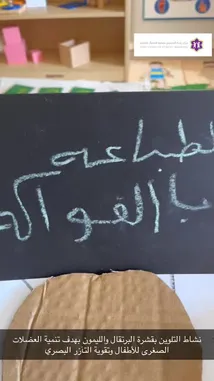 الطباعه
بالفواكه
نشاط التلوين بقشرة البرتقال والليمون بهدف تنمية العضلات
الصغرى للأطفال وتقوية التازر البصري